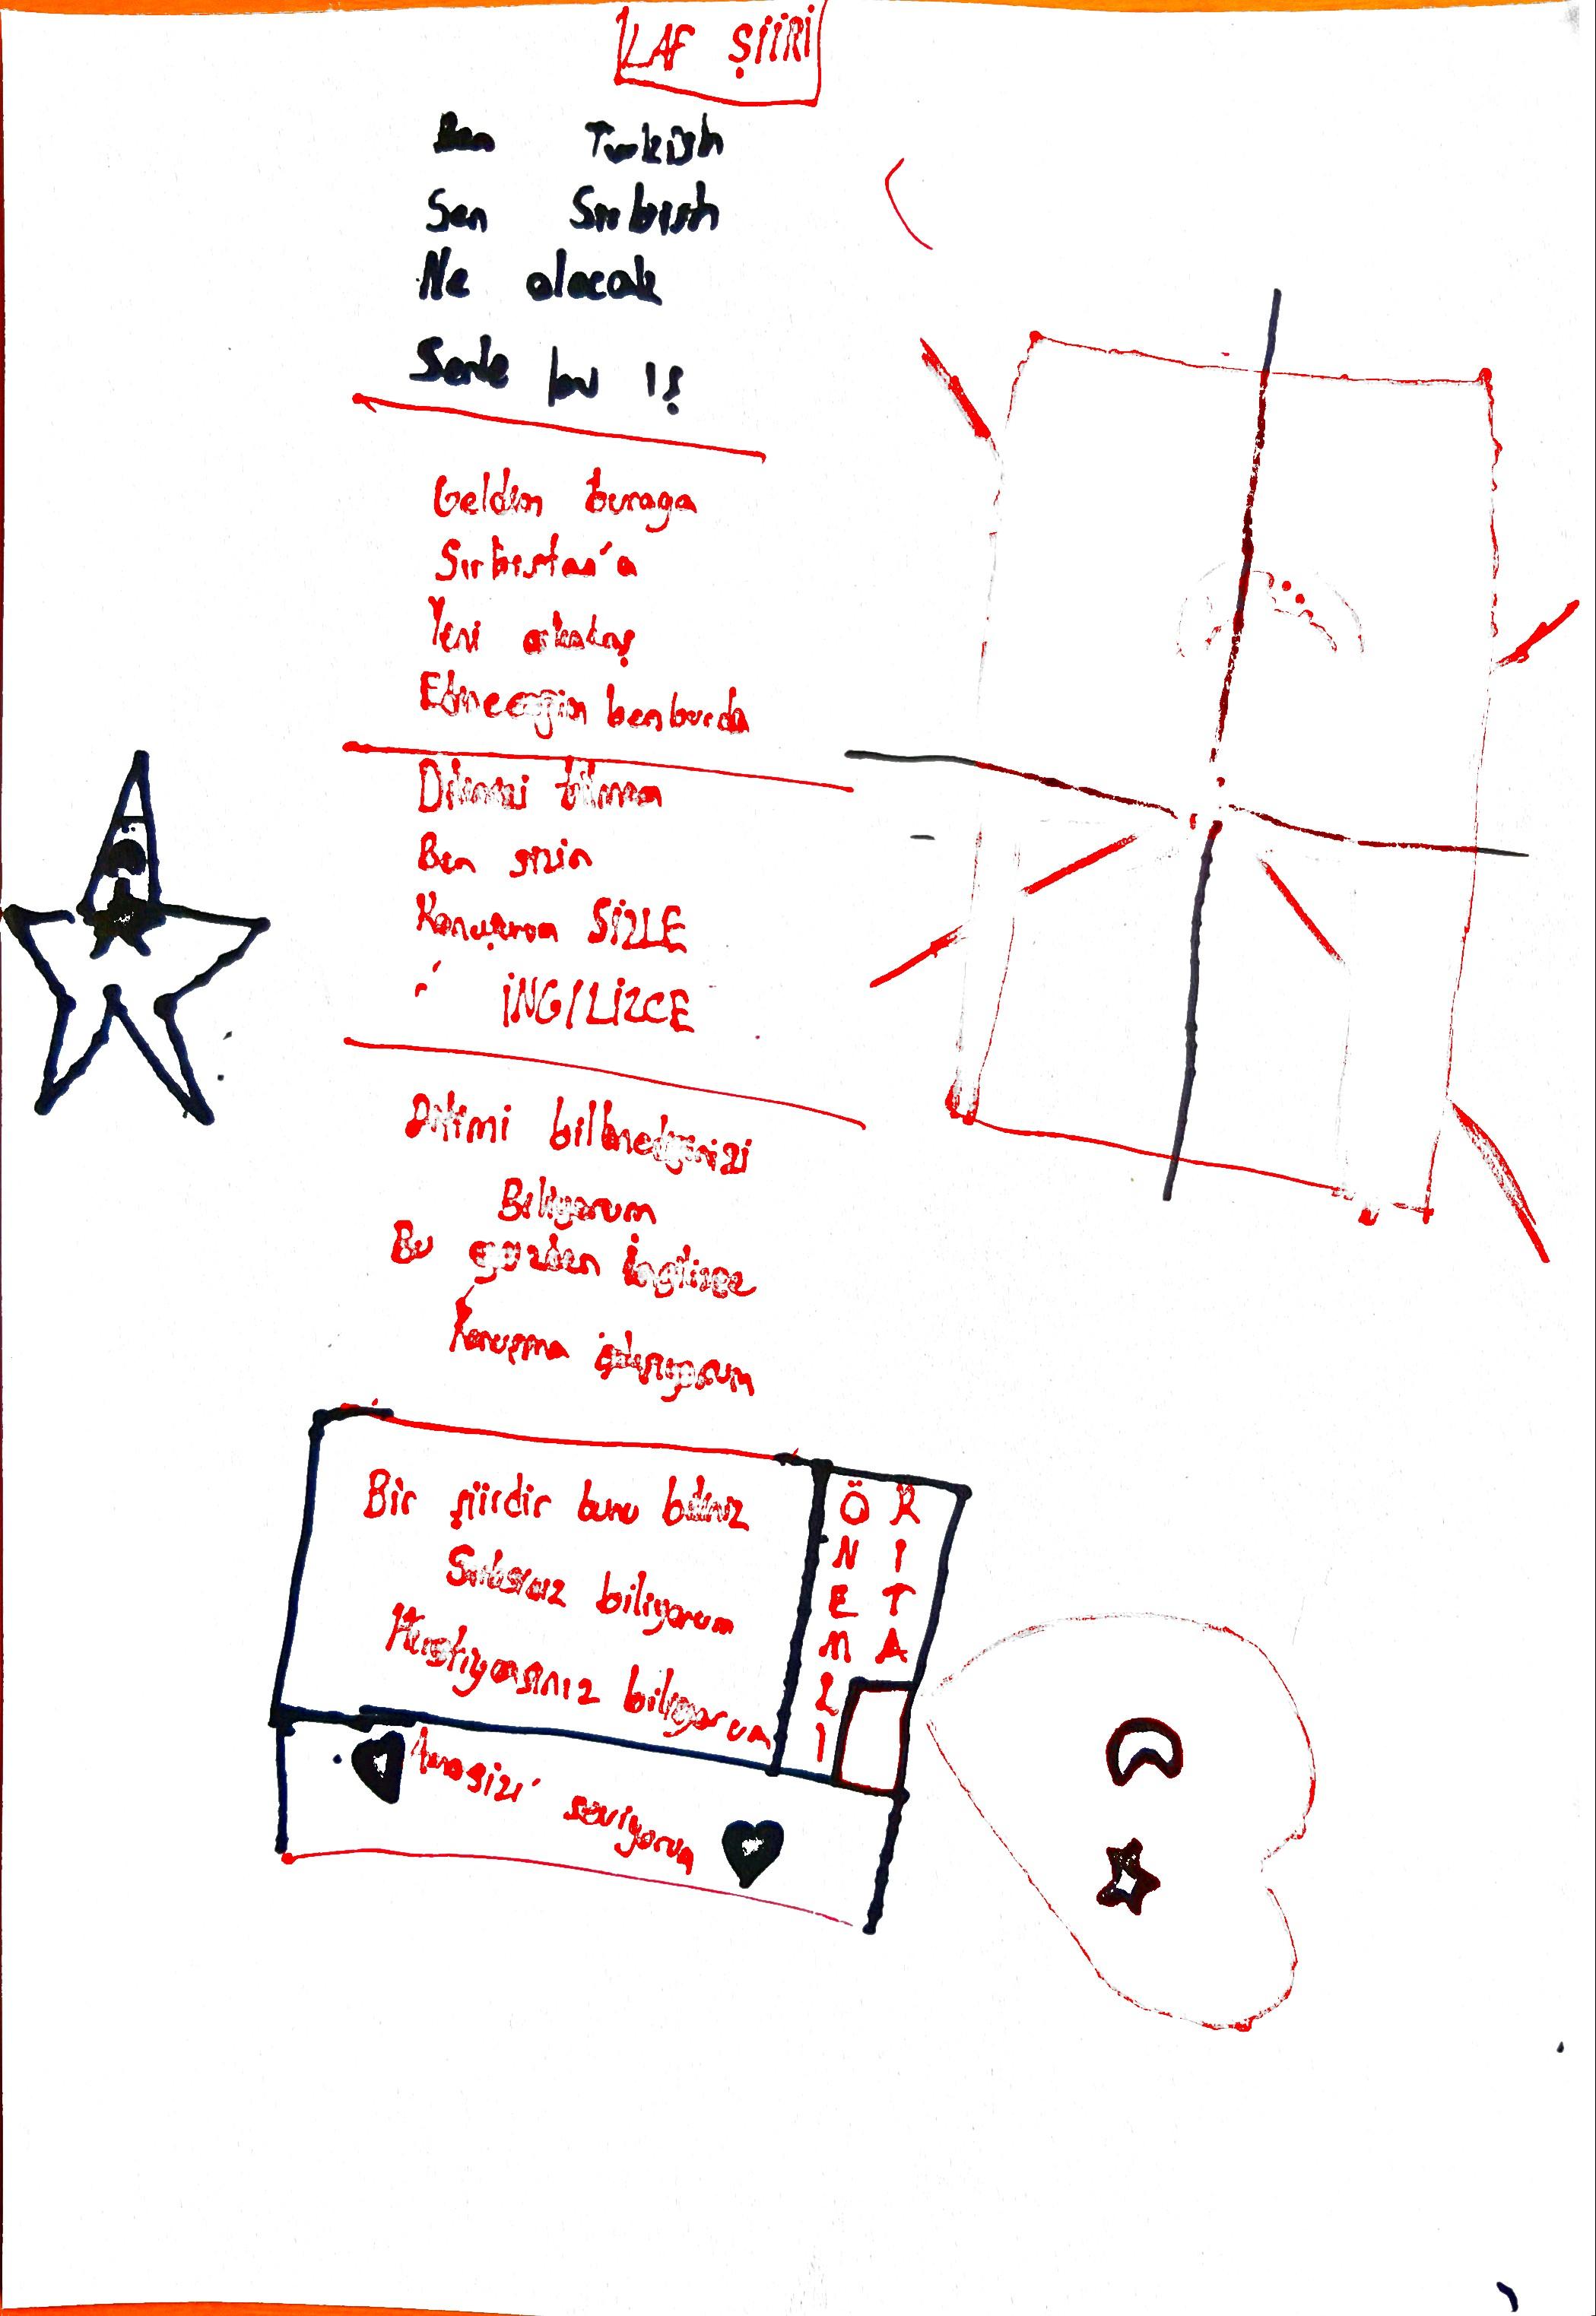 LAF ŞİİRİ
Ben Turkish
Sen Sırbish
Ne olacak
Senle bu iş
Geldim buraga
Sırbistan'a
Yeni arkadaş
Edineceğim ben burda
Dilinizi bilmem
Ben sizin
Konuşurum SİZLE
İNG/LİZCE
Dilimi bilmediğinizi
Biliyorum
Bu yüzden İngilizce
Konuşma istiyorum
Bir şiirdir bunu biliniz
Sırbsınız biliyorum
Hıristiyansınız biliyorum
Ama sizi seviyorum
ÖNEMLI
RITA